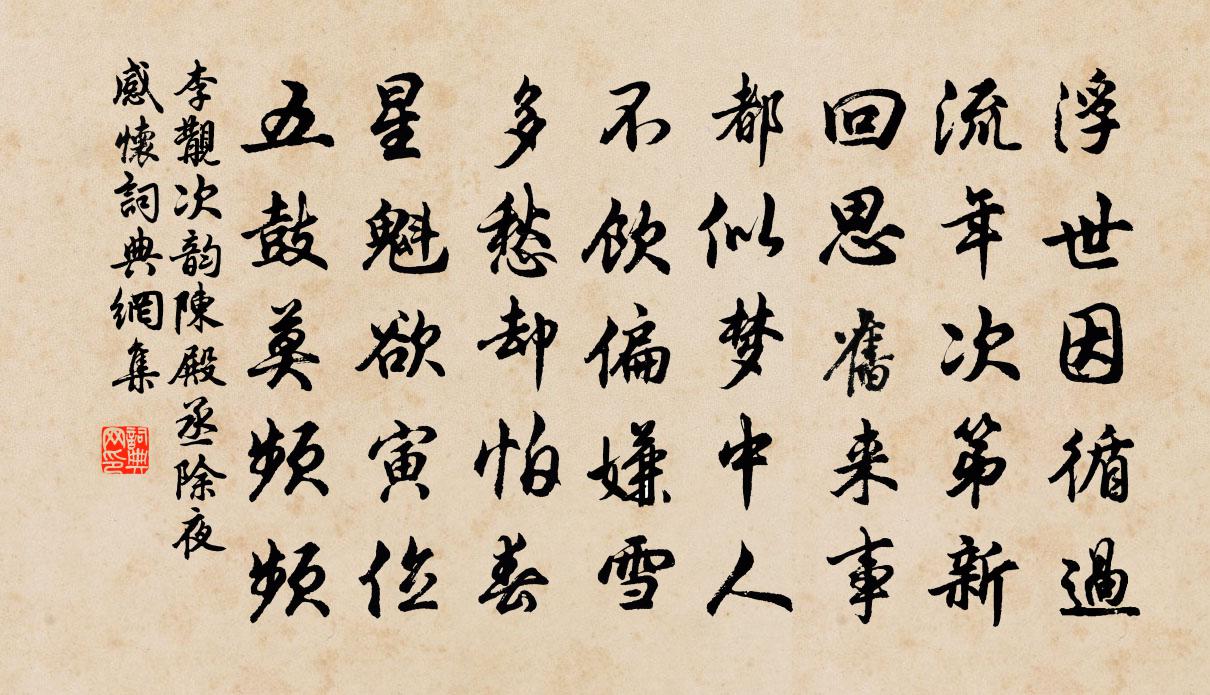 浮世因循過
流年次第新
回思舊来事
都似梦中人
不飲偏嫌雪
多愁却怕春
星魁欲寅位
五鼓莫頻頻
李覯次韵陳殿丞除夜
感懷詞典網集
詞典
网印